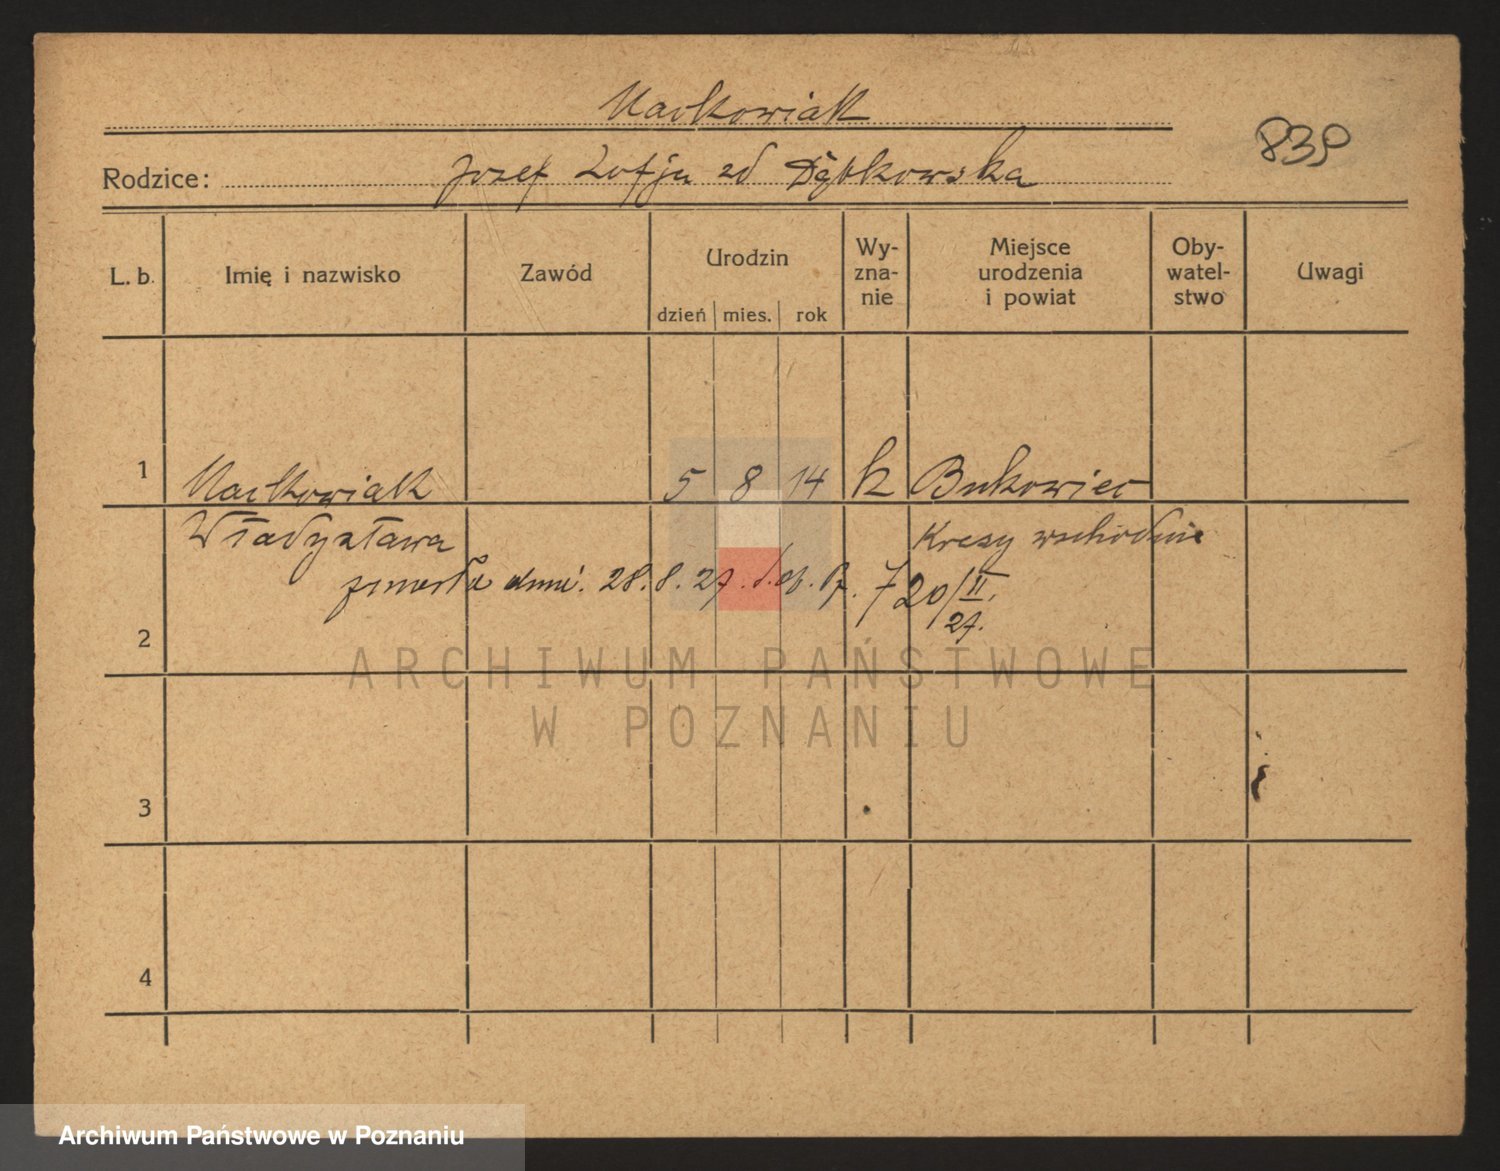 Maćkowiak
839
Rodzice: Józef Zofja zd Dębkowska
L. b. Imię i nazwisko Zawód Urodzin dzień mies. rok Wy-zna-nie Miejsce urodzenia i powiat Oby-watel-stwo Uwagi
1 Maćkowiak 5 8 14 k Bukowiec
Władysława Kresy wschodnie
zmarła dnia: 28.8.27.
20/II.
27.
2
ARCHIWUM PAŃSTWOWE
W POZNANIU
3
4
Archiwum Państwowe w Poznaniu